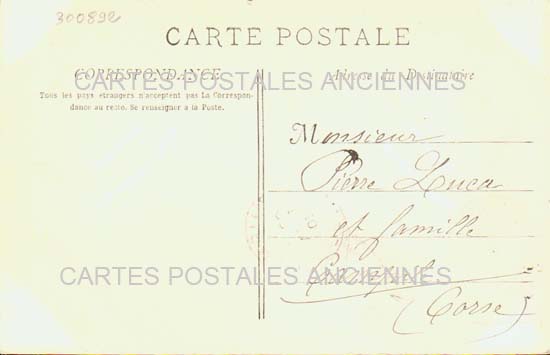 300892
CARTE POSTALE
CORRESPONDANCE
Tous les pays étrangers n'acceptent pas La Correspon-
dance au recto. Se renseigner a la Poste.
Adresse du Destinataire
CARTES POSTALES ANCIENNES
Monsieur
Pierre Luca
et famille
CARTES POSTALES ANCIENNES
(Corse)